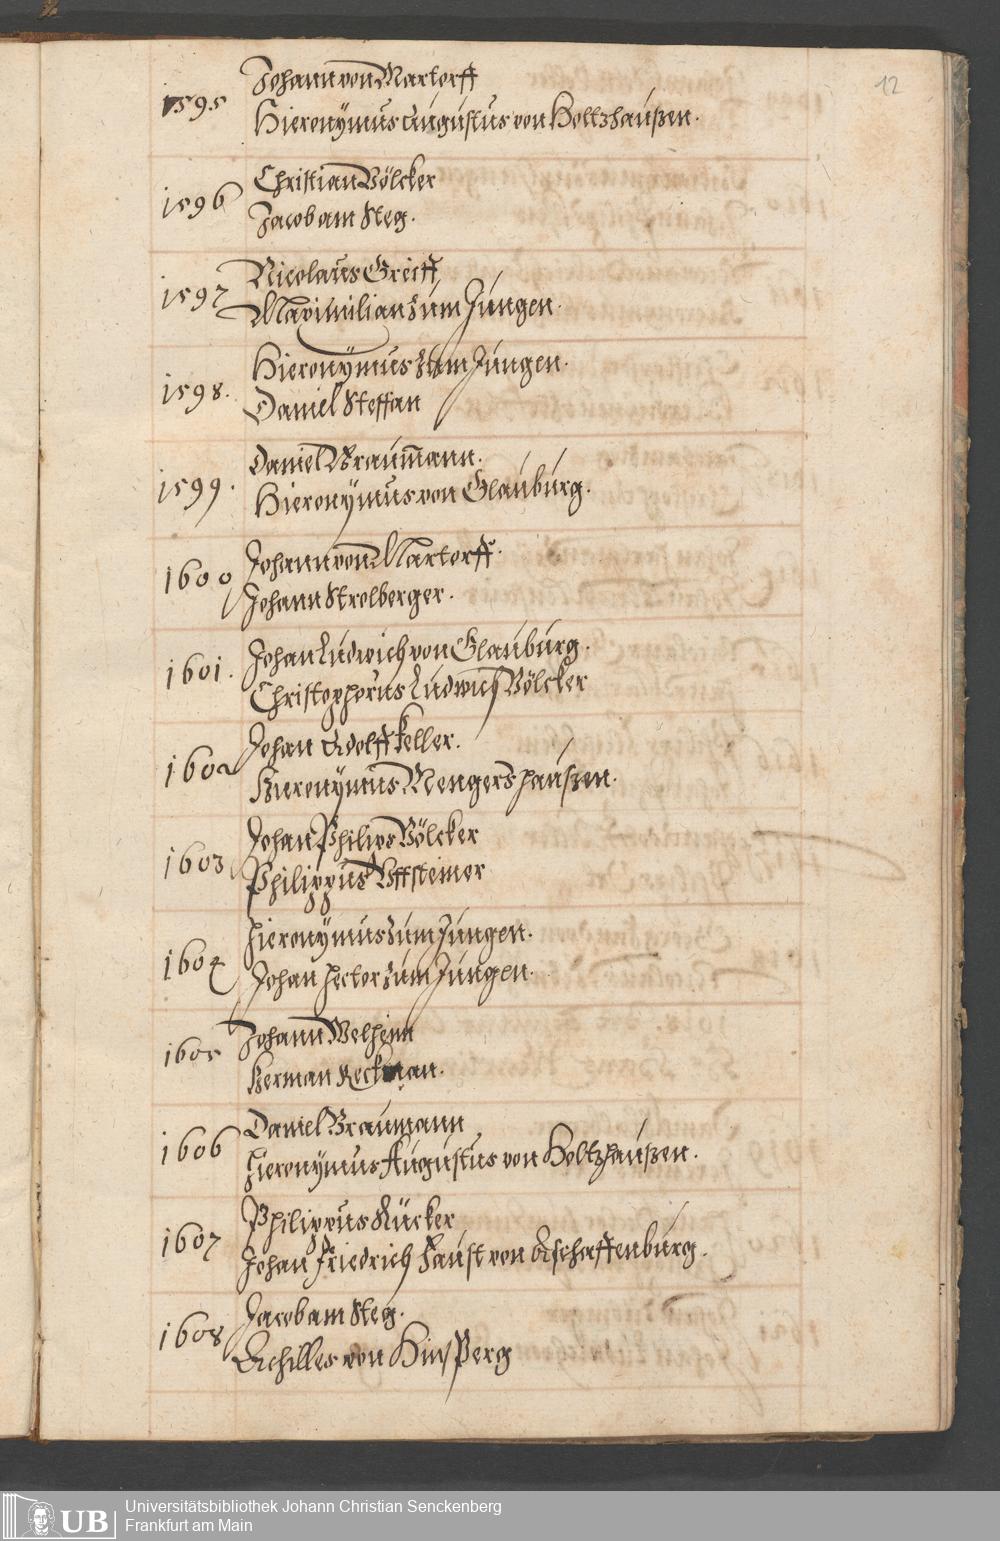 12
1595
Johann von Martorff
Hieronymus Augustus von Holtzhaußen.
1596
Christian Völcker
Jacob am Steg.
1597
Nicolaus Greiff
Maximilian zum Jungen.
1598.
Hieronÿmus zum Jungen.
Daniel Steffan
1599.
Daniel Braumann.
Hieronÿmus von Glauburg.
1600
Johann von Martorff.
Johann Strolberger.
1601.
Johan Ludwich von Glauburg.
Christopherus Ludwich Völcker
1602
Johan Adolff Keller.
Hieronÿmus Mengershaußen.
1603
Johan Philips Völcker
Philippus Uffsteiner
1604
Hieronÿmus zum Jungen.
Johan Hector zum Jungen.
1605
Johann Welhenn
Herman Reckman.
1606
Daniel Braumann
Hieronymus Augustus von Holtzhaußen.
1607
Philippus Rücker
Johan Friedrich Faust von Aschaffenburg.
1608
Jacob am Steg.
Achilles von Hinsperg
UB
Universitätsbibliothek Johann Christian Senckenberg
Frankfurt am Main